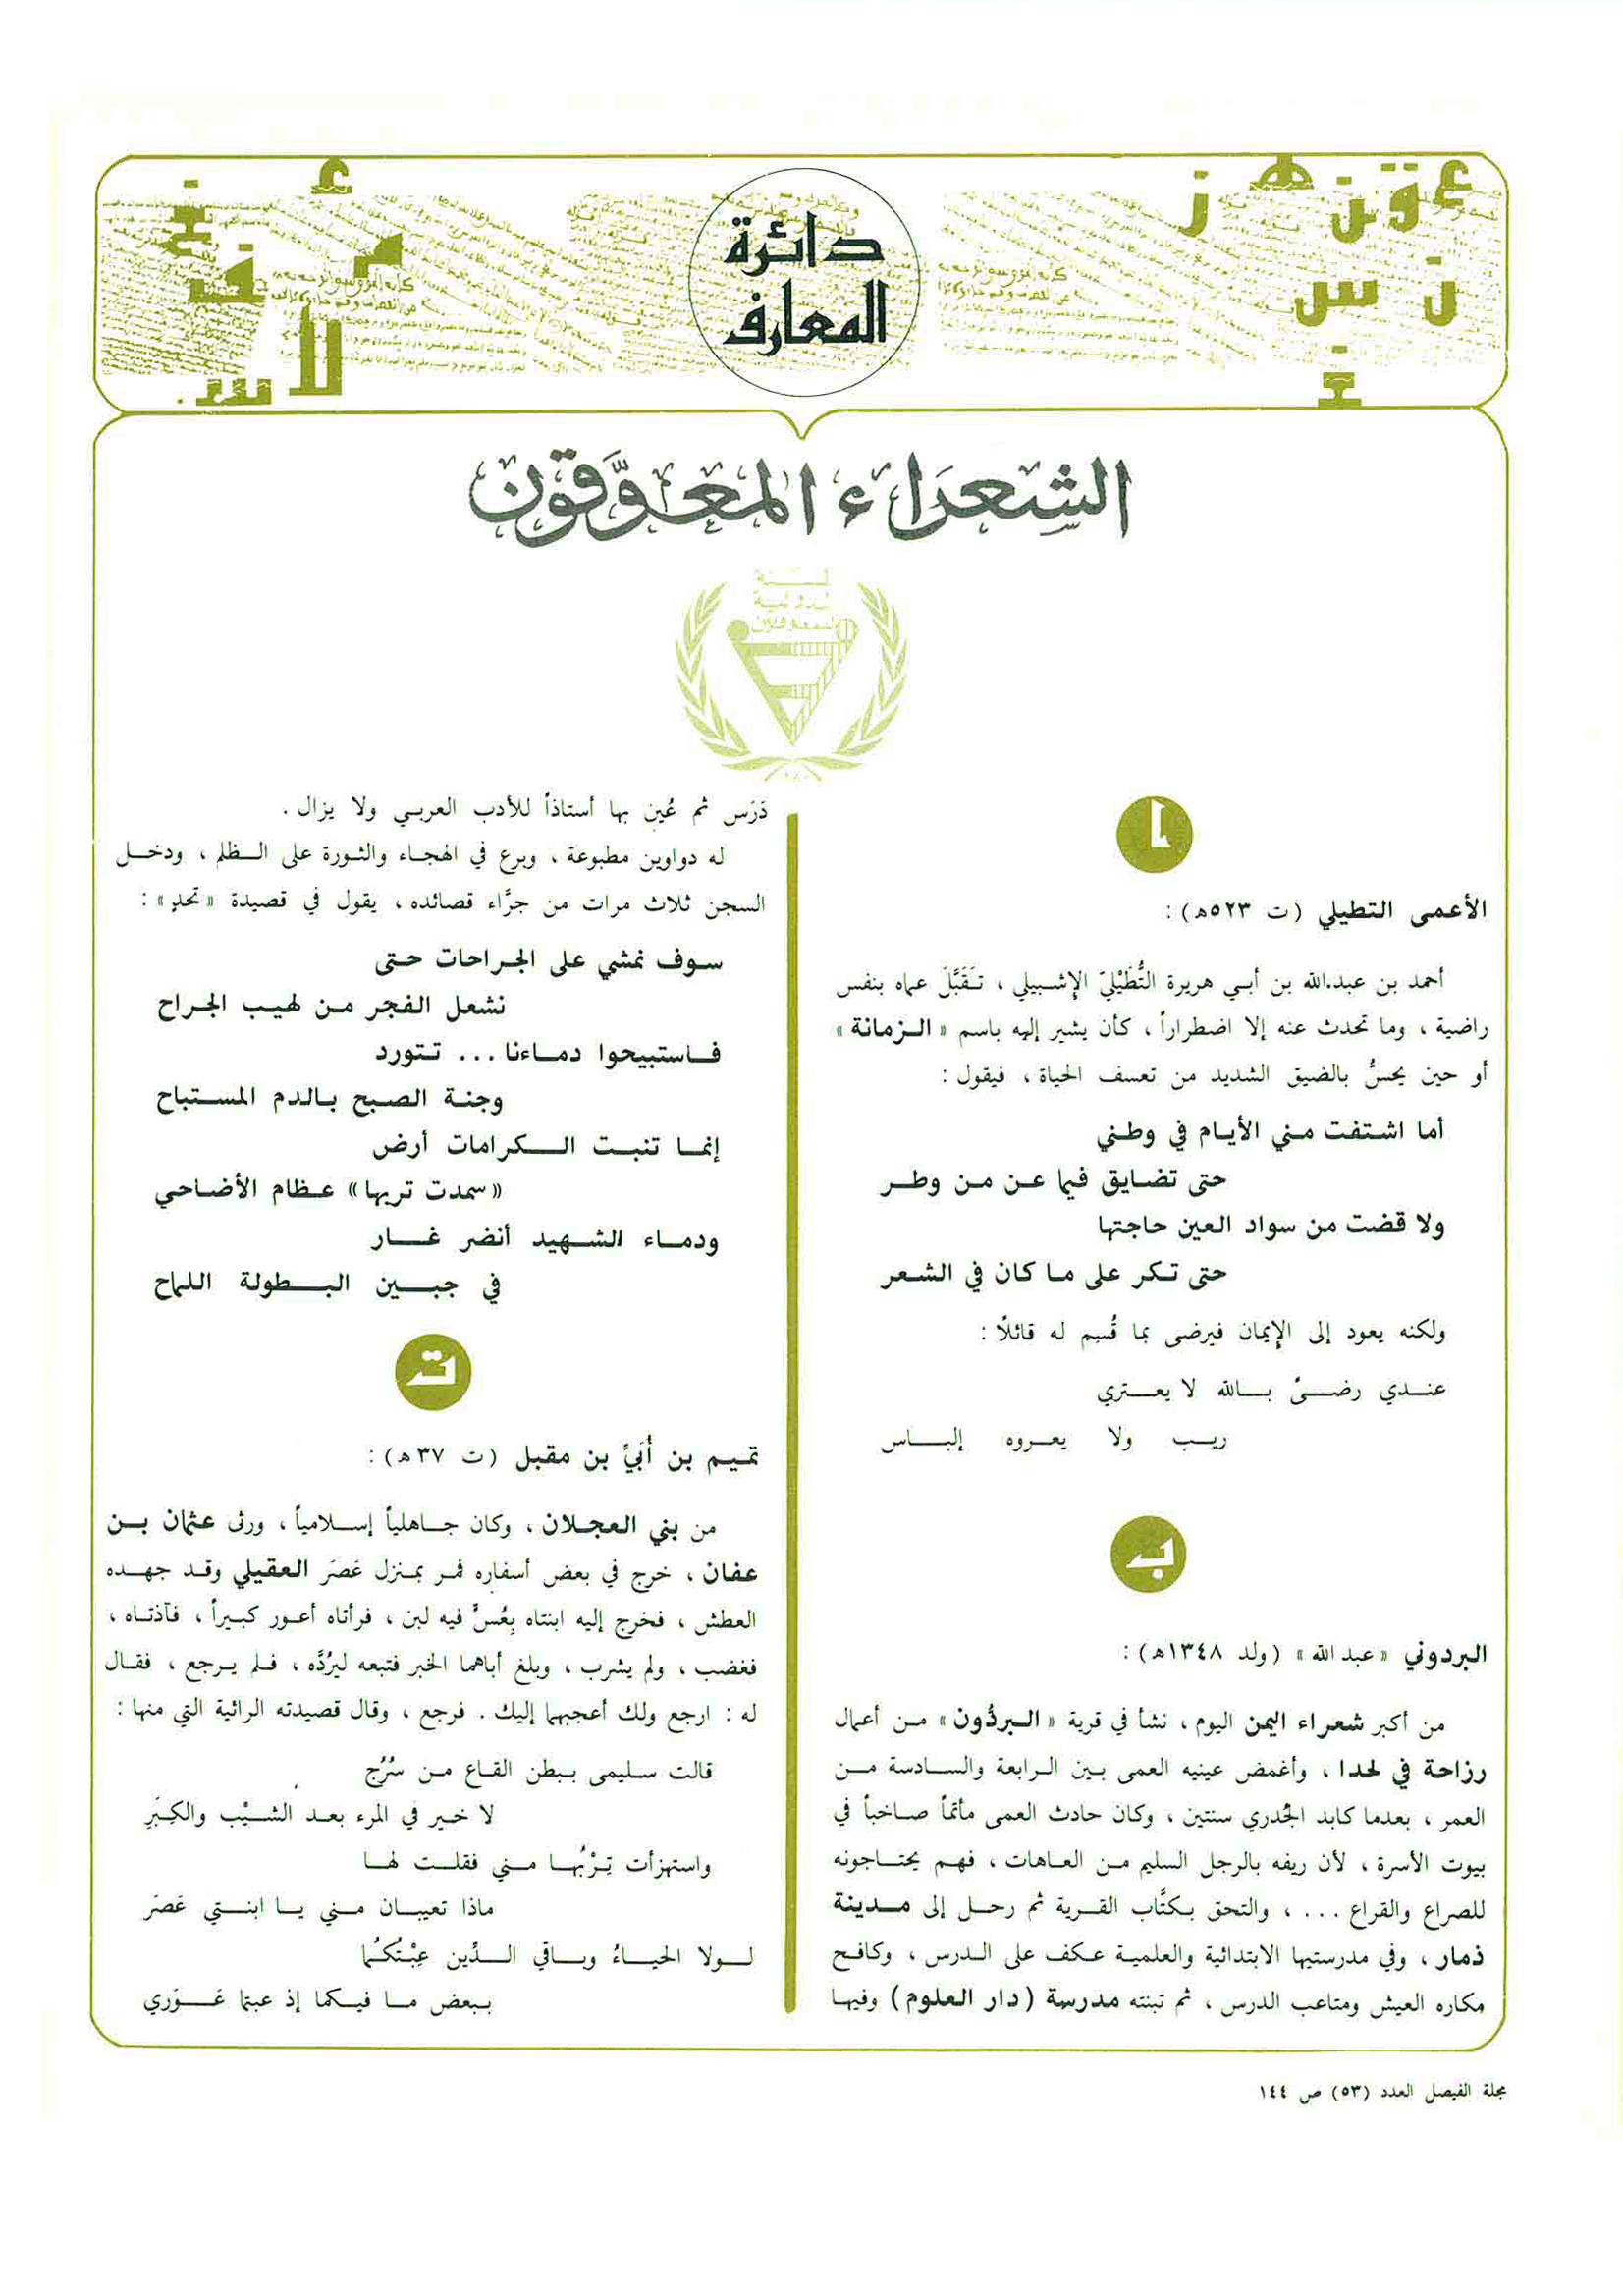 دائرة
المعارف
الشعراء المعوَّقون
ا
الأعمى التطيلي (ت ٥٢٣هـ):
أحمد بن عبدالله بن أبي هريرة التُّطَيْليّ الإشبيلي ، تقَبَّلَ عماه بنفس
راضية ، وما تحدث عنه إلا اضطراراً ، كأن يشير إليه باسم « الزمانة »
أو حين يحسُّ بالضيق الشديد من تعسف الحياة ، فيقول :
أما اشتفت مني الأيام في وطني
حتى تضايق فيما عن من وطر
ولا قضت من سواد العين حاجتها
حتى تكر على ما كان في الشعر
ولكنه يعود إلى الإيمان فيرضى بما قُسِم له قائلاً :
عندي رضىً بالله لا يعتري
ريب ولا يعروه إلباس
ب
البردوني « عبد الله » (ولد ١٣٤٨هـ) :
من أكبر شعراء اليمن اليوم ، نشأ في قرية « البردُّون » من أعمال
رزاحة في لحدا ، وأغمض عينيه العمى بين الرابعة والسادسة من
العمر ، بعدما كابد الجُدري سنتين ، وكان حادث العمى مأتماً صاخباً في
بيوت الأسرة ، لأن ريفه بالرجل السليم من العاهات ، فهم يحتاجونه
للصراع والقراع ... ، والتحق بكتَّاب القرية ثم رحل إلى مدينة
ذمار ، وفي مدرستيها الابتدائية والعلمية عكف على الدرس ، وكافح
مكاره العيش ومتاعب الدرس ، ثم تبنته مدرسة (دار العلوم) وفيها
دَرَس ثم عُين بها أستاذاً للأدب العربي ولا يزال .
له دواوين مطبوعة ، وبرع في الهجاء والثورة على الظلم ، ودخل
السجن ثلاث مرات من جرَّاء قصائده ، يقول في قصيدة « تحدٍ » :
سوف نمشي على الجراحات حتى
نشعل الفجر من لهيب الجراح
فاستبيحوا دماءنا ... تتورد
وجنة الصبح بالدم المستباح
إنما تنبت الكرامات أرض
«سمدت تربها» عظام الأضاحي
ودماء الشهيد أنضر غار
في جبين البطولة اللماح
ت
تميم بن أُبَيِّ بن مقبل (ت ٣٧هـ) :
من بني العجلان ، وكان جاهلياً إسلامياً ، ورثى عثمان بن
عفان ، خرج في بعض أسفاره فمر بمنزل عَصَر العقيلي وقد جهده
العطش ، فخرج إليه ابنتاه بِعُسٍّ فيه لبن ، فرأتاه أعور كبيراً ، فآذتاه ،
فغضب ، ولم يشرب ، وبلغ أباهما الخبر فتبعه ليرُدَّه ، فلم يرجع ، فقال
له : ارجع ولك أعجبهما إليك . فرجع ، وقال قصيدته الرائية التي منها :
قالت سليمى ببطن القاع من سُرُج
لا خير في المرء بعد الشيْب والكِبَرِ
واستهزأت تِرْبُها مني فقلت لها
ماذا تعيبان مني يا ابنتي عَصَر
لولا الحياءُ وباقي الدِّين عِبْتُكُما
ببعض ما فيكما إذ عبتما عَوَري
مجلة الفيصل العدد (٥٣) ص ١٤٤